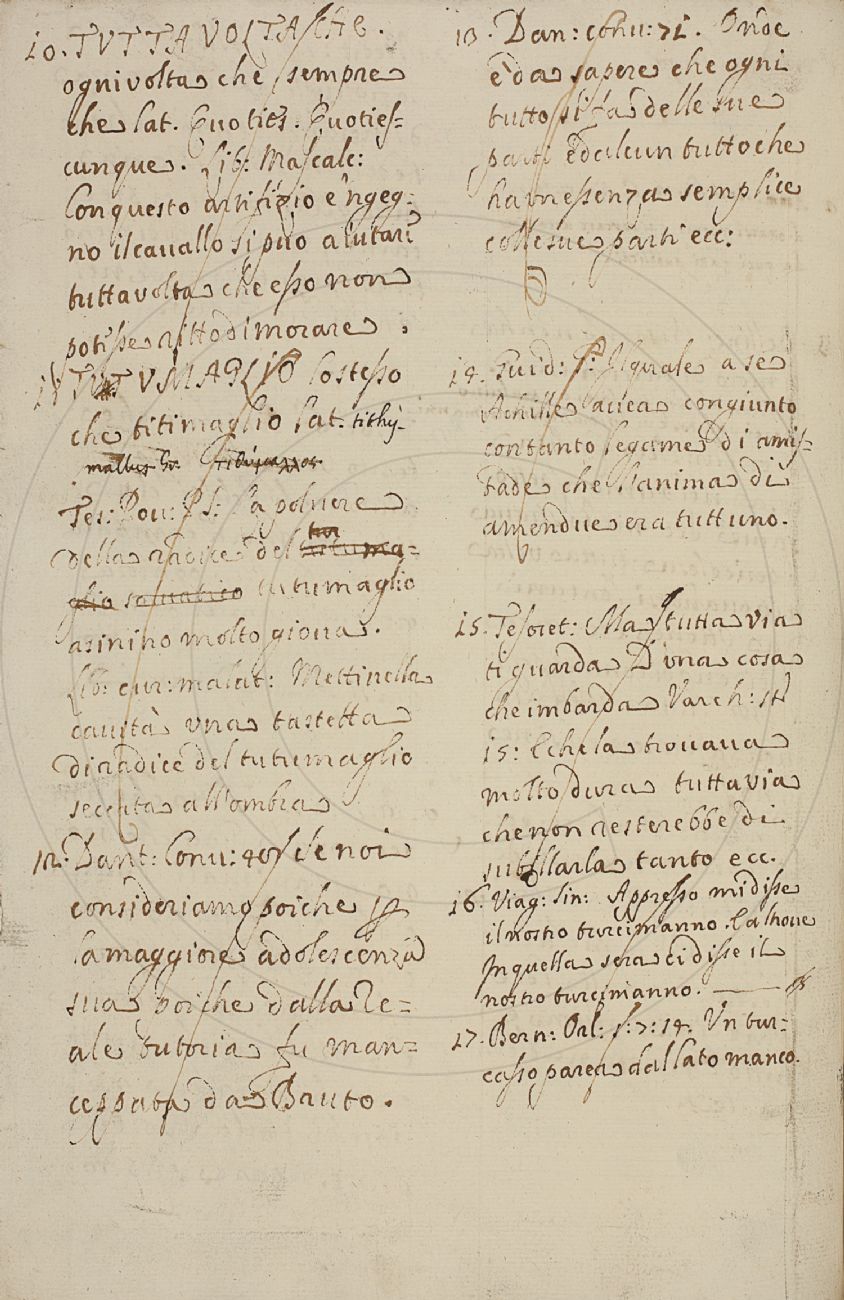 10. TVTTAVOLTA CHE.
ogni volta che, sempre
che lat. Quoties. Quoties=
cunque. Lib: Mascalc:
Con questo artifizio e'ngeg=
no il cavallo si può aiutare
tutta volta che esso non
potesse ritto dimorare.
11 TVTVMAGLIO lo stesso
che titimaglio lat. tithy-
mallus Gr.
Tes: Pov: P.S: la polvere
della radice del
tutumaglio
asinino molto giova.
Lib: cur: malat: Metti nella
cavità una tastetta
di radice del tutumaglio
seccata all'ombra
12. Dant: Conv: 201 Se noi
consideriamo poiche p
la maggiore adolescenza
sua poiche dalla re=
ale tutoria fu man=
ceppata da Bruto.
13. Dan: Conv: 71. Onde
è da sapere che ogni
tutto si fa delle sue
parti ed alcun tutto che
ha un essenza semplice
colle sue parti ecc:
14. Guid: G. Il quale a se
Achille avea congiunto
con tanto legame di amis=
tade che l'anima di
amendue era tutt uno.
15. Tesoret: Ma tutta via
ti guarda D'una cosa
che imbarda Varch: St
15: E che la trovava
molto dura tutta via
che non resterebbe di
subillarla tanto ecc.
16. Viag: Sin: Appresso mi disse
il nostro turcimanno. La
In quella sera ci disse il
nostro turcimanno.
17. Bern: Orl: 1: 7: 14. Un tur-
casso parea dal lato manco.